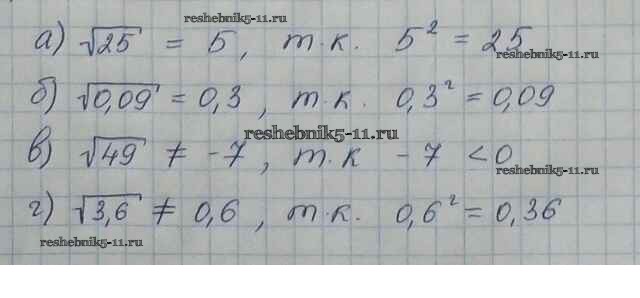 reshebnik5-11.ru
а) √25 = 5, т.к. 5² = 25
reshebnik5-11.ru
б) √0,09 = 0,3, т.к. 0,3² = 0,09
reshebnik5-11.ru
в) √49 ≠ -7, т.к -7 < 0
reshebnik5-11.ru
reshebnik5-11.ru
г) √3,6 ≠ 0,6, т.к. 0,6² = 0,36
reshebnik5-11.ru